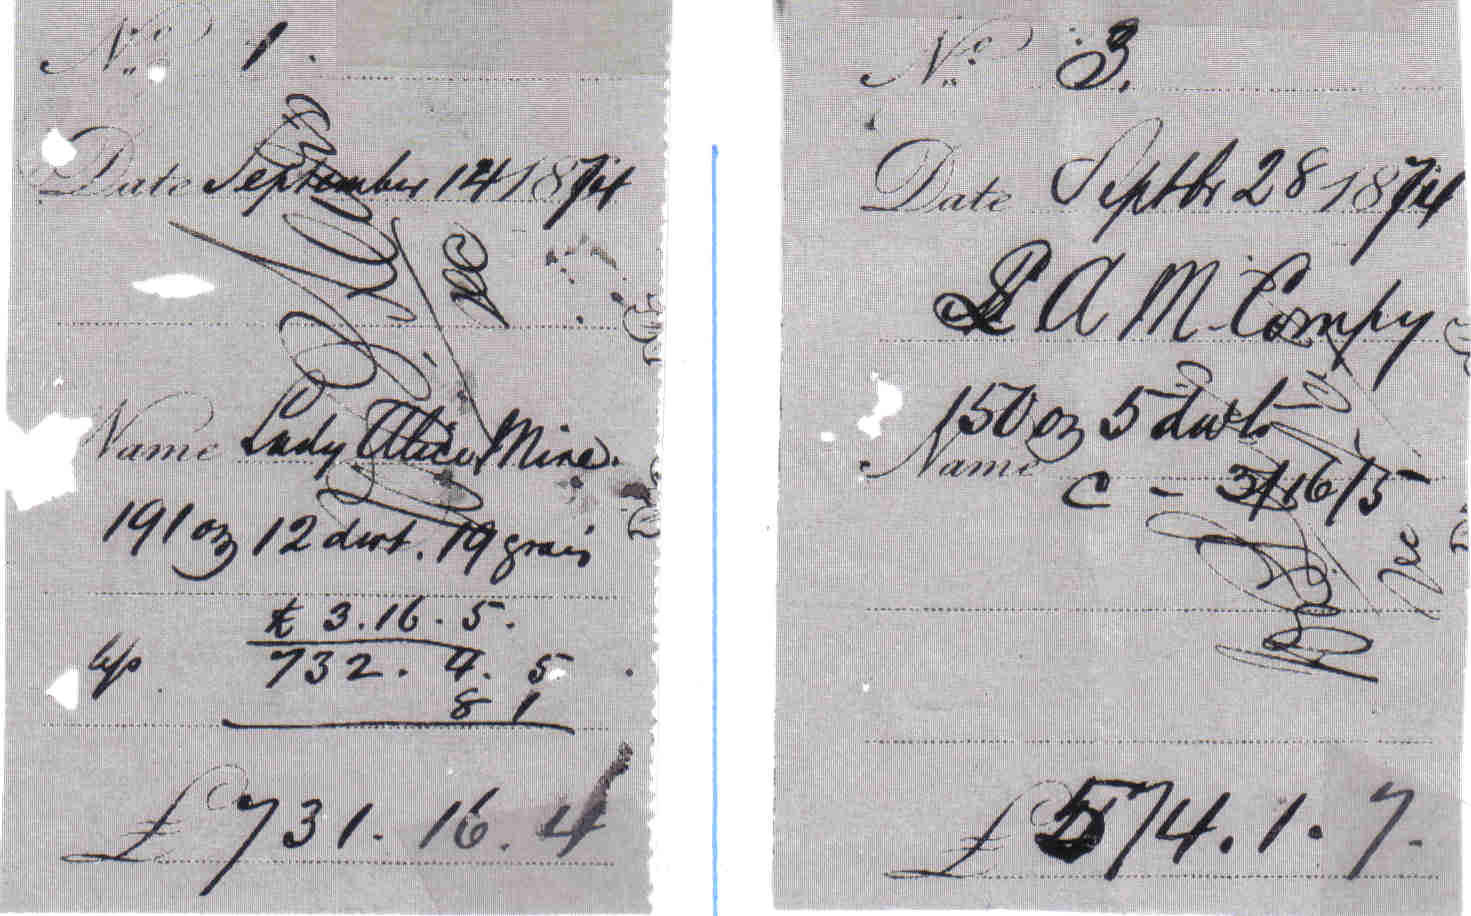 No. 1.
Date September 14 1874
Name Lady Alice Mine.
191 oz 12 dwt. 19 grains
£ 3.16.5.
732. 4. 5
8 1
£ 731. 16. 4
No. 3.
Date Septbr 28 1874
P A M. Compy
150 oz 5 dwts
Name
c - 3/16/5
£ 574. 1. 7.